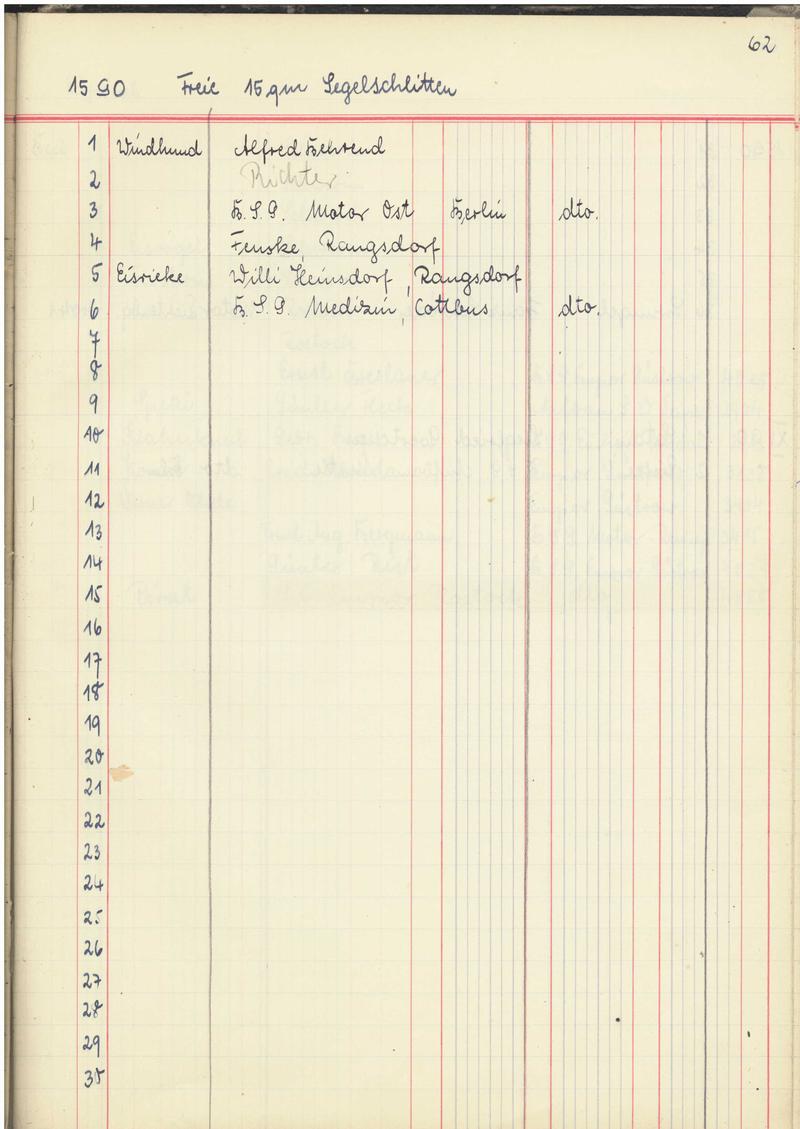 62
15 GO Freie 15 qm Segelschlitten
1 Windhund Alfred Behrend
2 Richter
3 B.S.G. Motor Ost Berlin dto.
4 Fenske, Rangsdorf
5 Eisrieke Willi Heinsdorf, Rangsdorf
6 B.S.G. Medizin, Cottbus dto.
7
8
9
10
11
12
13
14
15
16
17
18
19
20
21
22
23
24
25
26
27
28
29
30